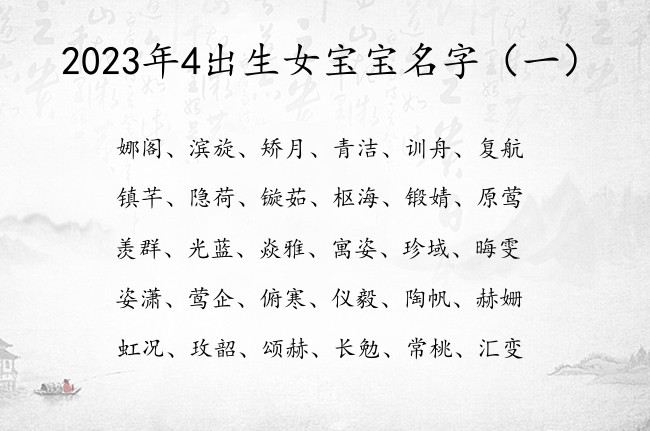 2023年4出生女宝宝名字（一）
娜阁、滨旋、矫月、青洁、训舟、复航
镇芊、隐荷、镟茹、枢海、锻婧、原莺
羡群、光蓝、焱雅、寓姿、珍域、晦雯
姿潇、莺企、俯寒、仪毅、陶帆、赫姗
虹况、玫韶、颂赫、长勉、常桃、汇变